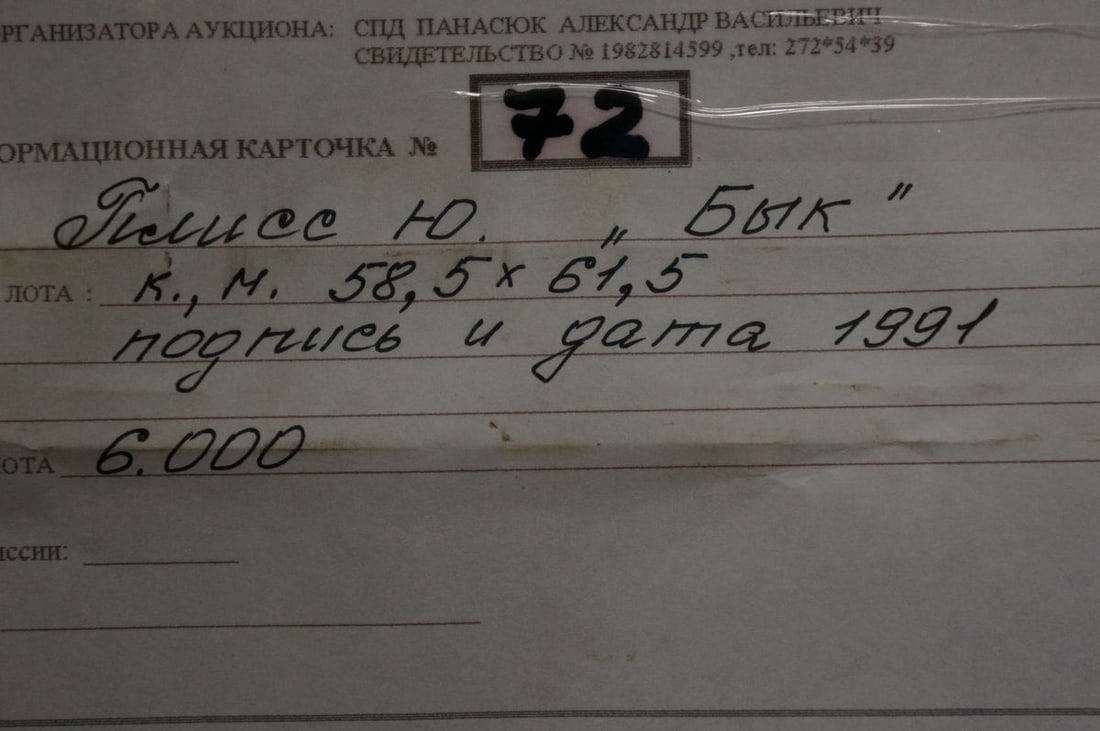 ОРГАНИЗАТОРА АУКЦИОНА: СПД ПАНАСЮК АЛЕКСАНДР ВАСИЛЬЕВИЧ
СВИДЕТЕЛЬСТВО № 1982814599 ,тел: 272*54*39
ОРМАЦИОННАЯ КАРТОЧКА № 72
Плисс Ю. „ Бык "
ЛОТА : к., м. 58,5 х 61,5
подпись и дата 1991
ОТА 6.000
ссии: